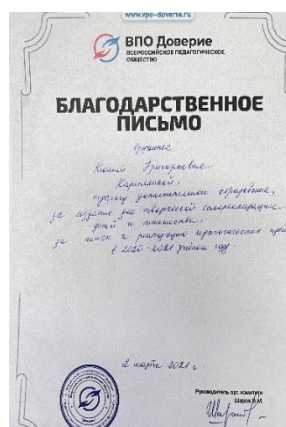 www.vpo-doverie.ru
ВПО Доверие
ВСЕРОССИЙСКОЕ ПЕДАГОГИЧЕСКОЕ
ОБЩЕСТВО
БЛАГОДАРСТВЕННОЕ
ПИСЬМО
Вручается
Григорьевне
педагогу дополнительного образования,
за создание для творческой самореализации
детей и
за поиск и реализацию педагогических идей
в 2020-2021 учебном году
2 марта 2021 г.
Руководитель орг. комитета
Шаров В.М.